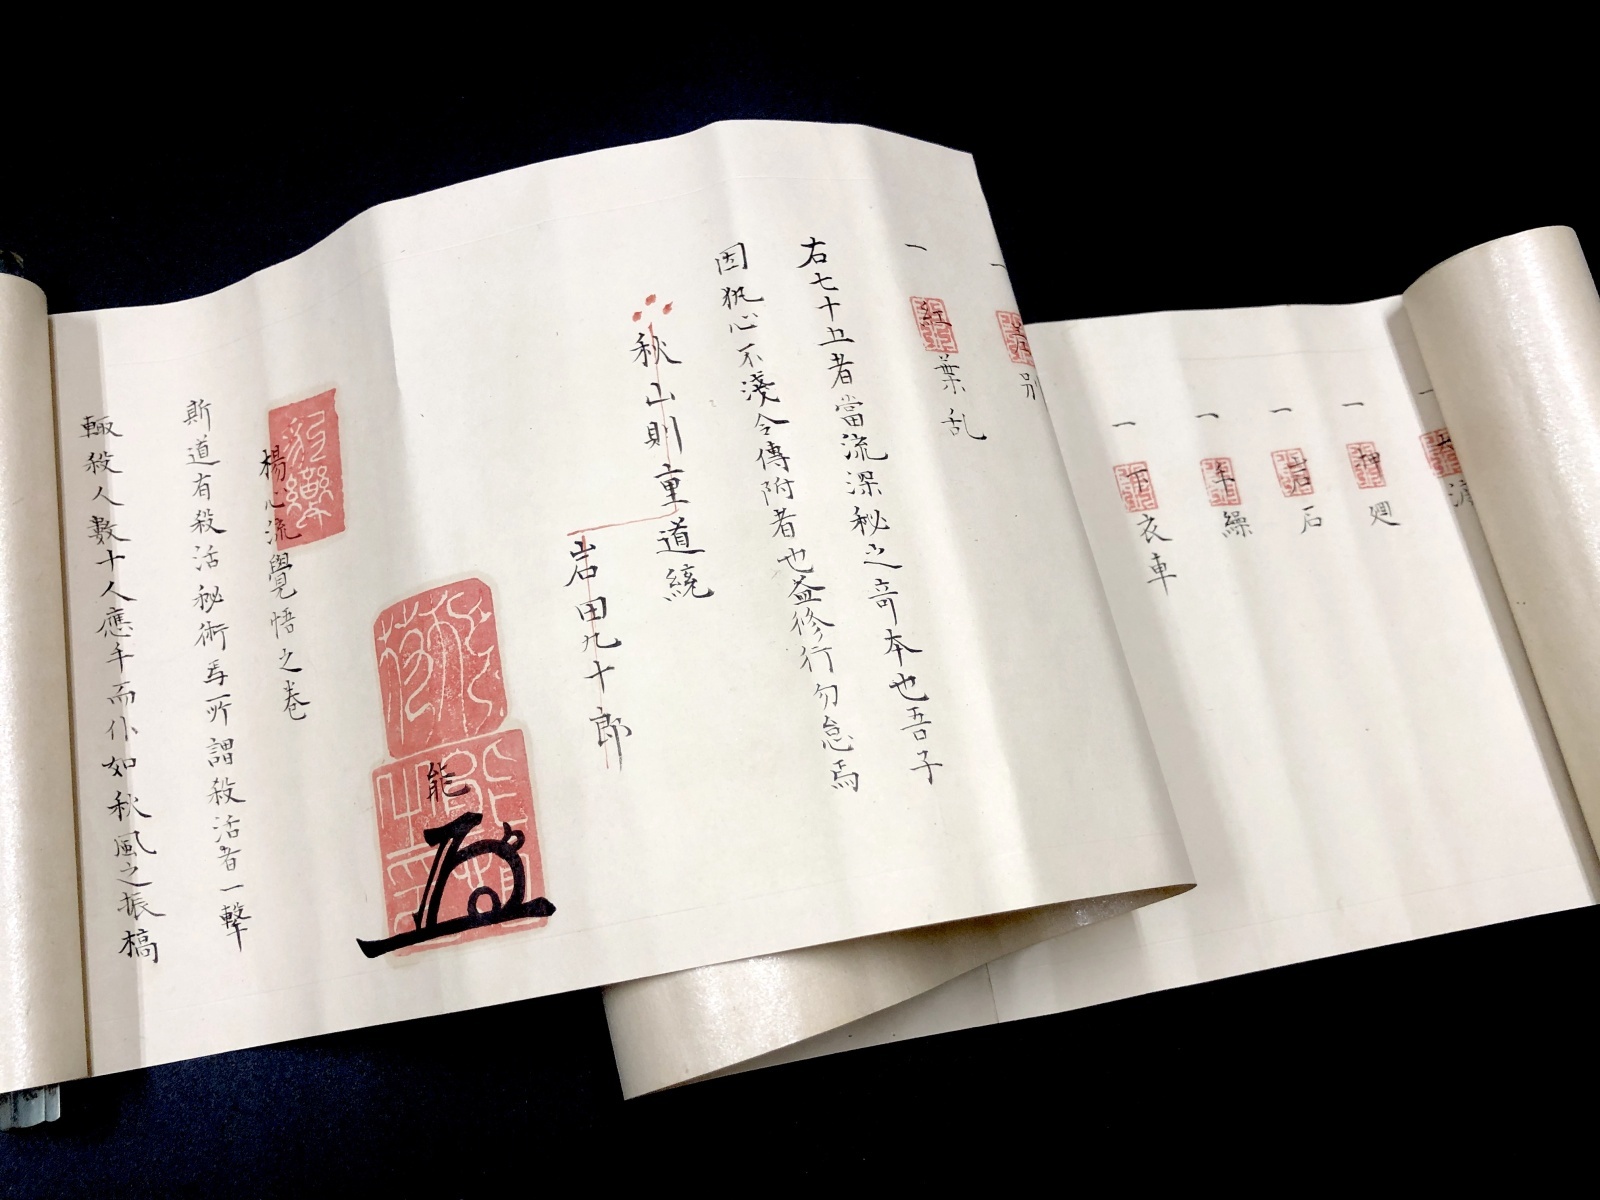 一 押廻
一 岩石
一 車繰
一 下衣車
別
一 紅葉乱
右七十五者當流深秘之奇本也吾子
因執心不淺令傳附者也益修行勿怠焉
秋山則重道統
岩田九十郎
能
楊心流覺悟之巻
斯道有殺活秘術焉所謂殺活者一撃
輙殺人數十人應手而仆如秋風之振槁